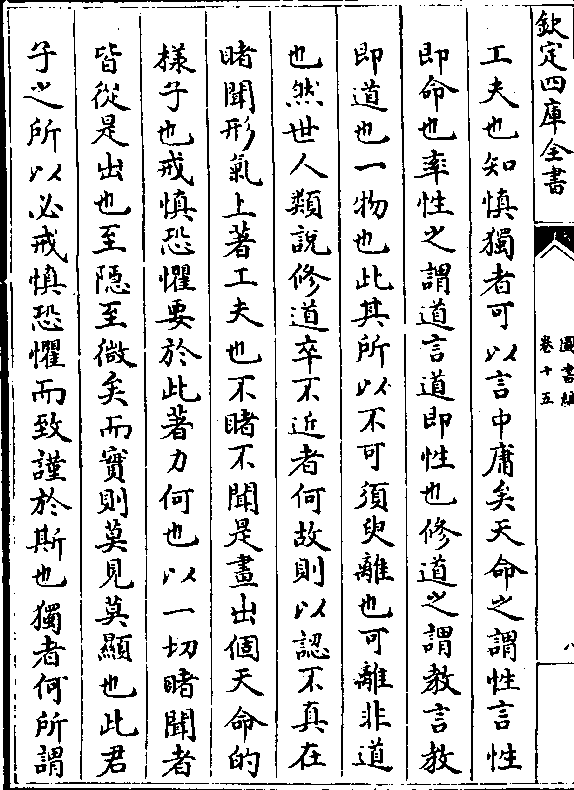 欽定四庫全書
圖書編
卷十五
八
工夫也知慎獨者可以言中庸矣天命之謂性言性
即命也率性之謂道言道即性也修道之謂教言教
即道也一物也此其所以不可須臾離也可離非道
也然世人類說修道卒不近者何故則以認不真在
睹聞形氣上著工夫也不睹不聞是畫出個天命的
樣子也戒慎恐懼要於此著力何也以一切睹聞者
皆從是出也至隱至微矣而實則莫見莫顯也此君
子之所以必戒慎恐懼而致謹於斯也獨者何所謂